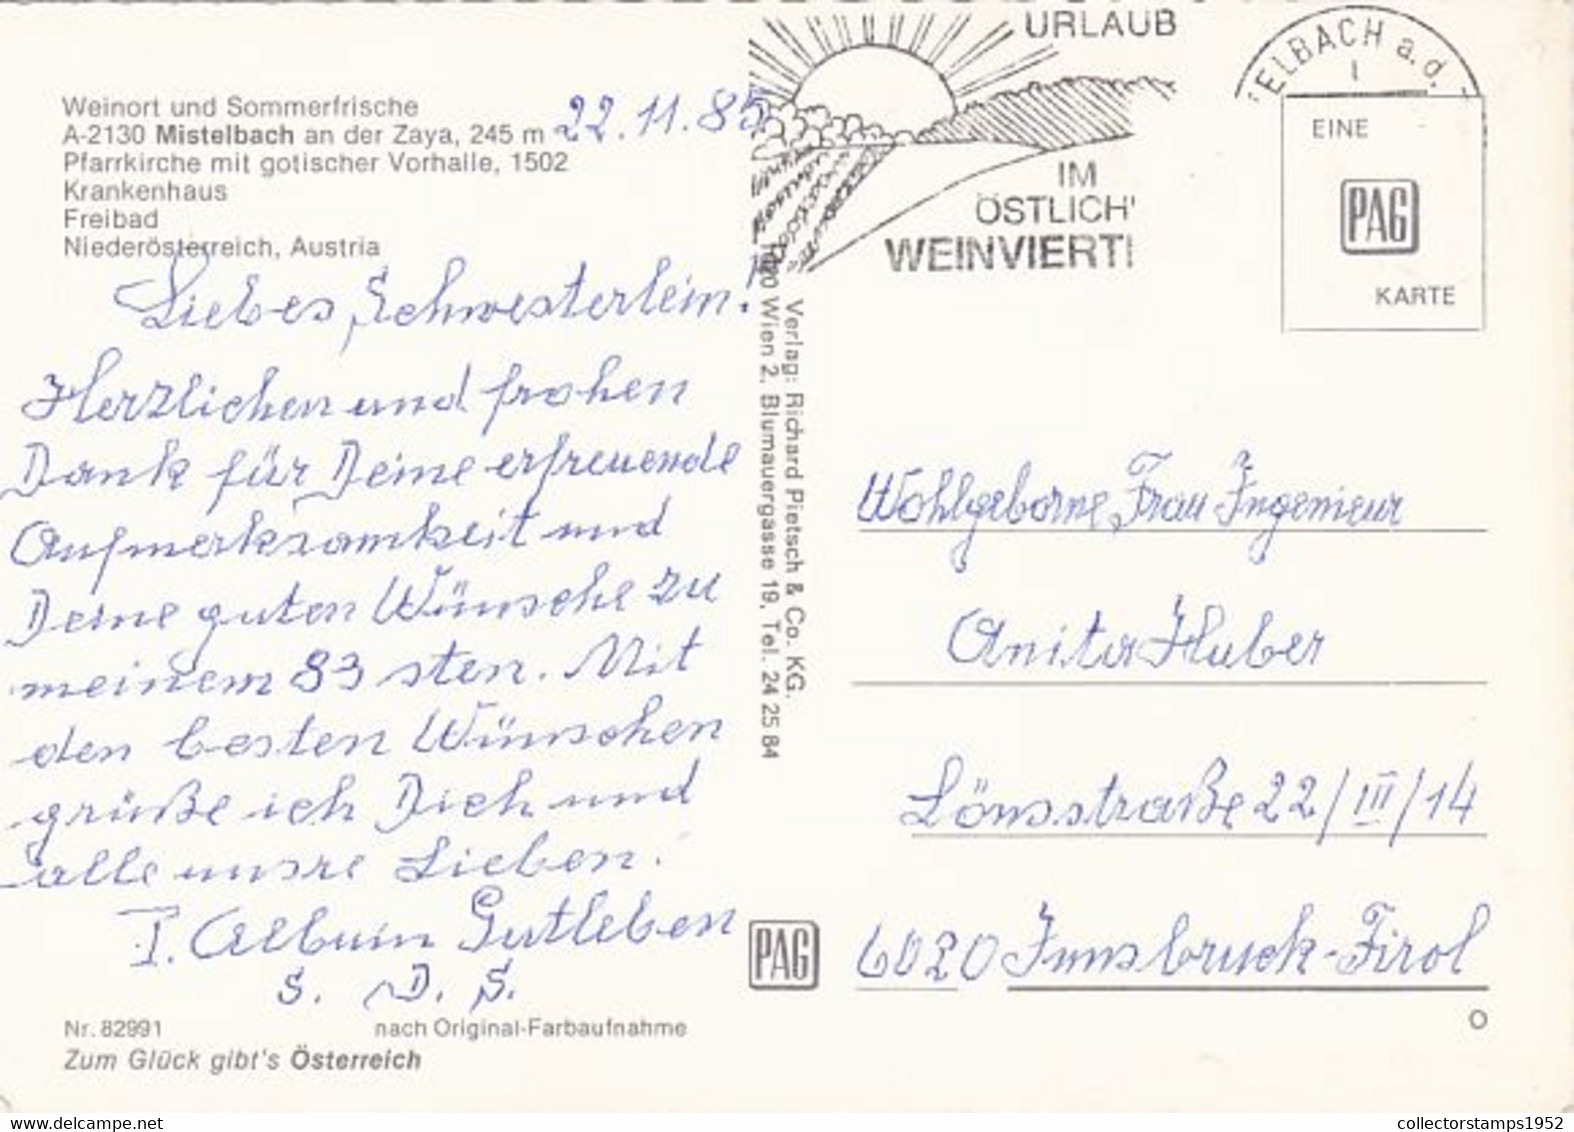 Weinort und Sommerfrische
A-2130 Mistelbach an der Zaya, 245 m
Pfarrkirche mit gotischer Vorhalle, 1502
Krankenhaus
Freibad
Niederösterreich, Austria
22.11.85
Liebes Schwesterlein!
Herzlichen und frohen
Dank für Deine erfreuende
Aufmerksamkeit und
Deine guten Wünsche zu
meinem 83 sten. Mit
den besten Wünschen
grüße ich Dich und
alle unsre Lieben.
P. Albuin Gutleben
S. D. S.
Nr. 82991 nach Original-Farbaufnahme
Zum Glück gibt's Österreich
Verlag: Richard Pietsch & Co. KG.
1020 Wien 2, Blumauergasse 19, Tel. 24 25 84
PAG
URLAUB
IM
ÖSTLICH'
WEINVIERT
ELBACH a. d.
EINE
PAG
KARTE
Wohlgeborne Frau Ingenieur
Anita Huber
Lönsstraße 22/III/14
6020 Innsbruck-Tirol
collectorstamps1952